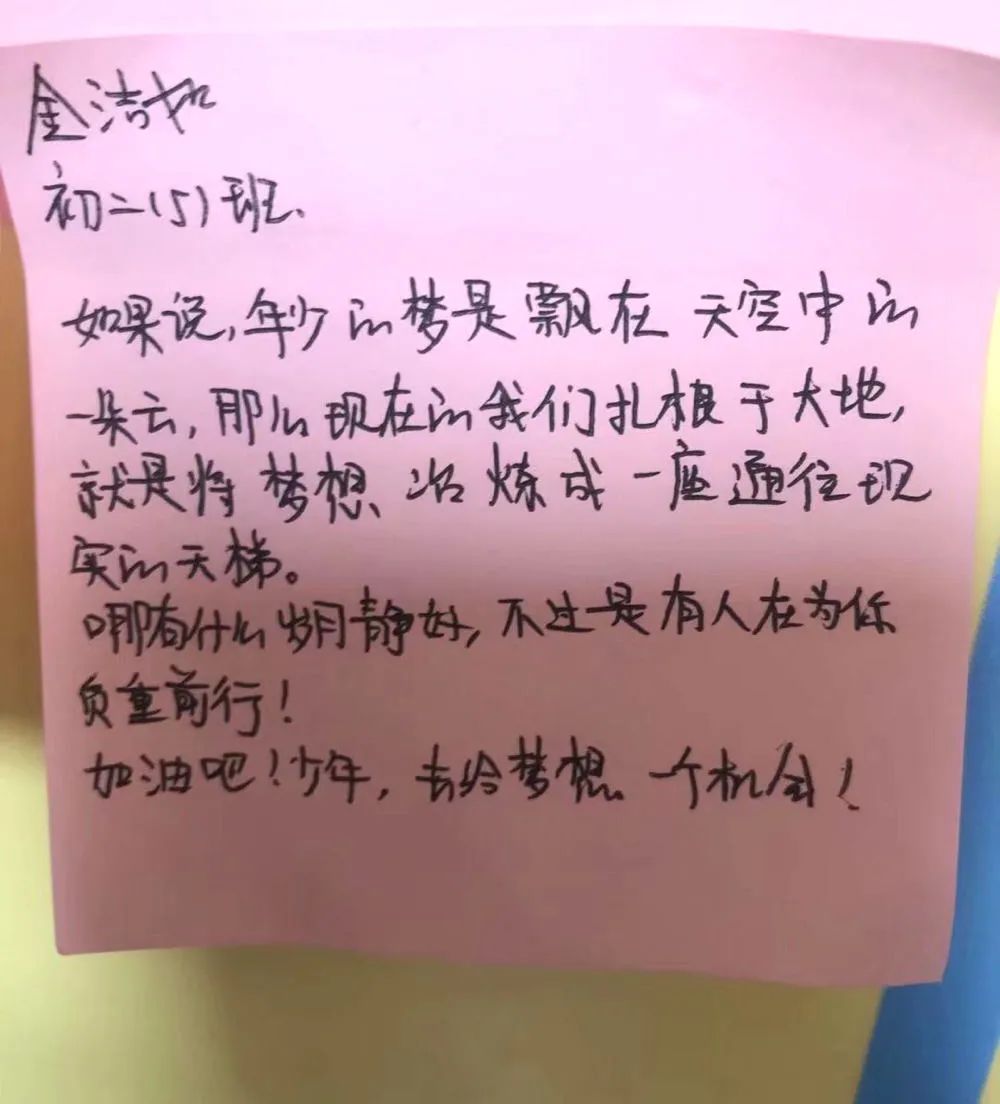 金洁如
初二(5)班.
如果说,年少的梦是飘在天空中的
一朵云,那么现在的我们扎根于大地,
就是将梦想冶炼成一座通往现
实的天梯。
哪有什么岁月静好,不过是有人在为你
负重前行!
加油吧!少年,去给梦想一个机会!